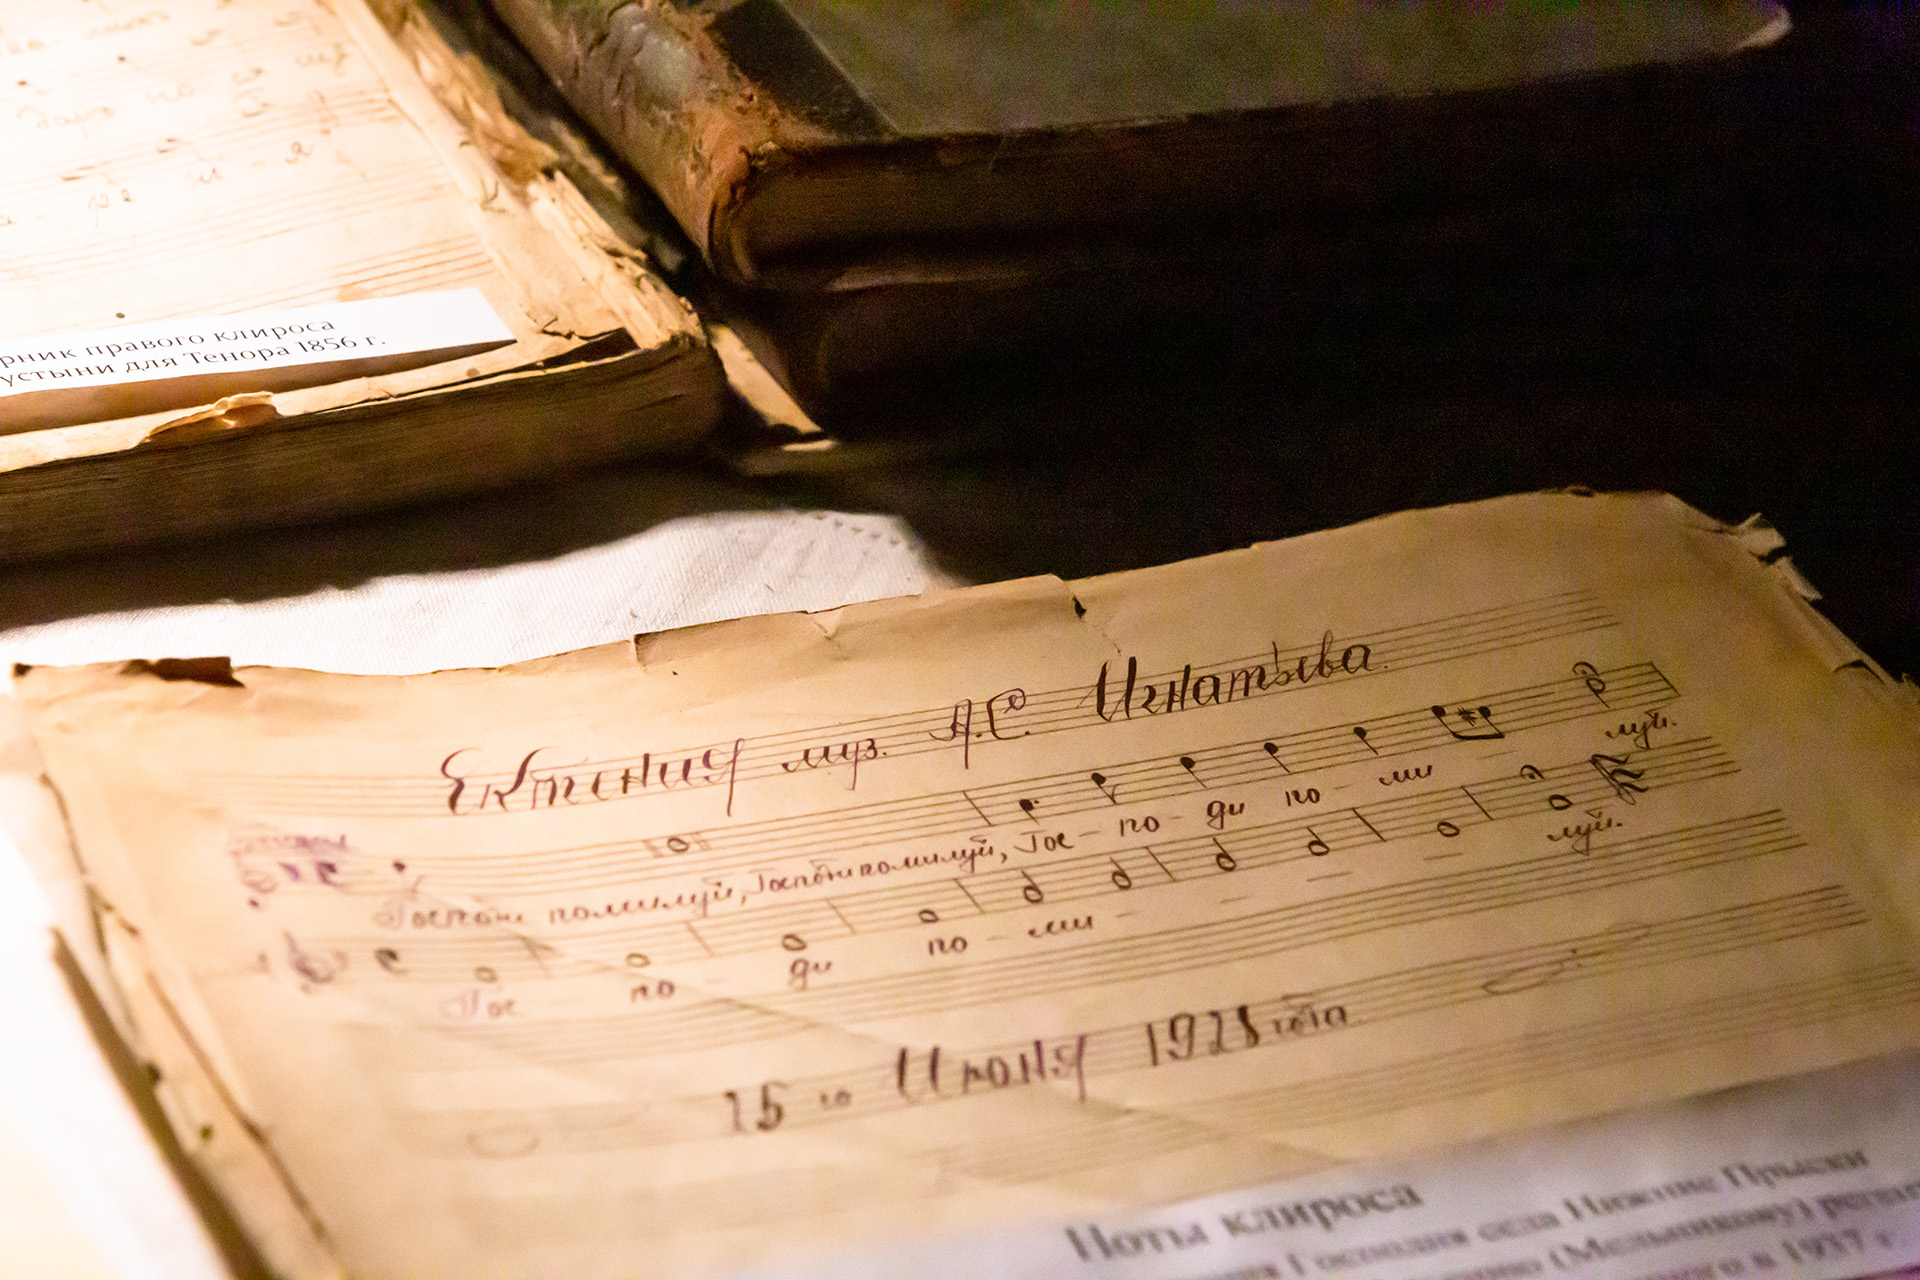 рник правого клироса
устыни для Тенора 1856 г.
Ектения муз. А.С. Игнатьева.
Господи помилуй, Господи помилуй, Гос - по - ди по - ми луй.
Гос - по - ди по - ми - луй.
15 го Июня 1928 года.
Ноты клироса
Господня села Нижние Прыски
(Мельникову)
в 1937 г.